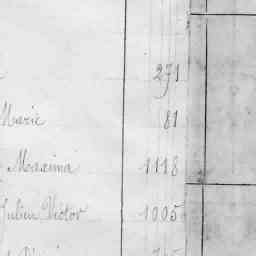 271
Marie 81
Maxima 1118
Julien Victor 1005